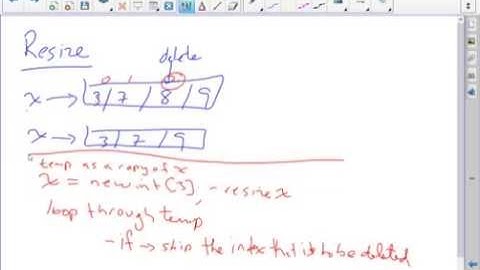 Resize
delete
0 1
x → 3 / 7 / 8 / 9
x → 3 / 7 / 9
temp as a copy of x
x = new int [3], - resize x
loop through temp
- if → skip the index that is to be deleted